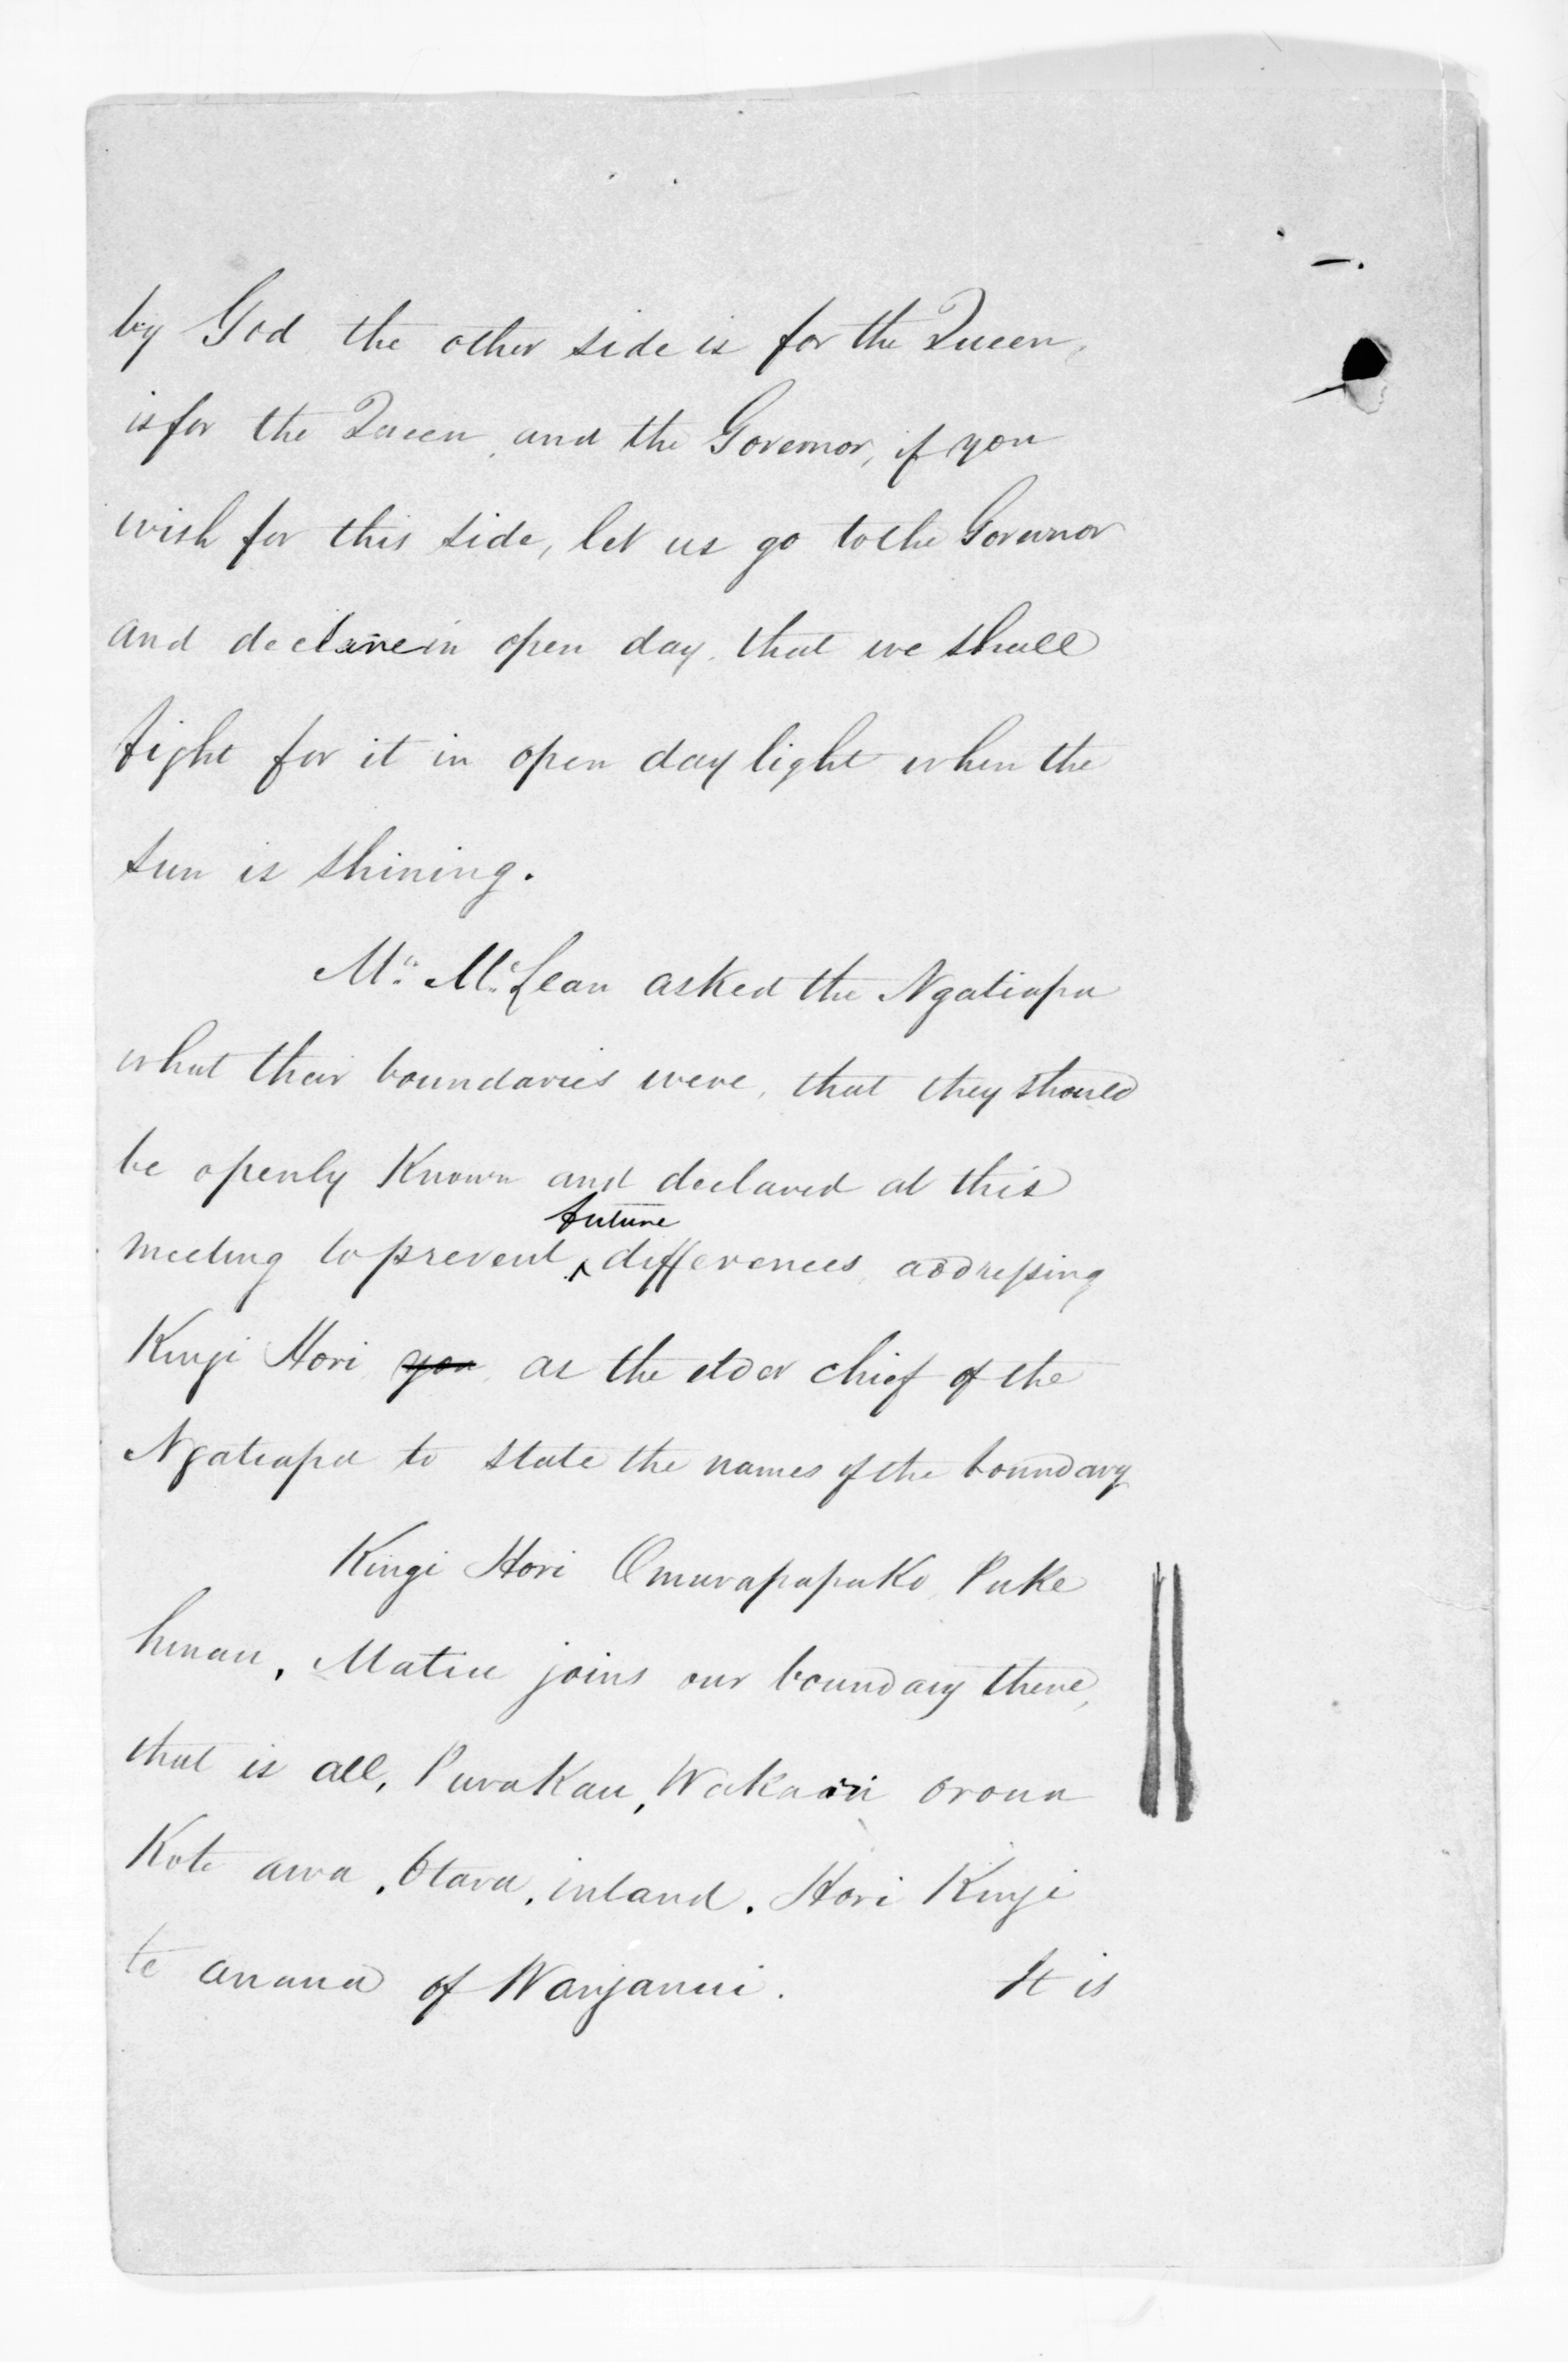 by God the other side is for the Queen,
is for the Queen, and the Governor, if you
wish for this side, let us go to the Governor
and declare in open day, that we shall
fight for it in open day light when the
sun is shining.
Mr. McLean asked the Ngatiapa
what their boundaries were, that they should
be openly Known and declared at this
future
meeting to prevent ^ differences, addressing
Kingi Hori you as the elder chief of the
Ngatiapa to state the names of the boundary
Kingi Hori Omurapapako, Puke
hinau, Matiu joins our boundary there,
that is all, Purakau, Wakaari oroua
Kote awa, Otara, inland. Hori Kingi
te anaua of Wanganui. It is